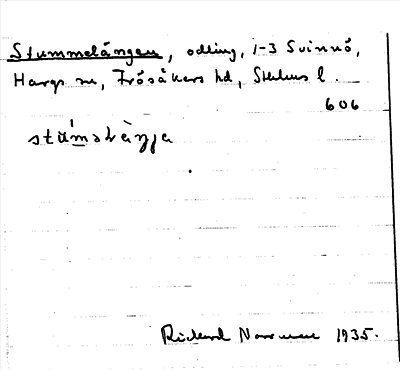 Stummelängen, odling, 1-3 Svinnö,
Hargs sn, Frösåkers hd, Sthlms l.
606
Rickard 1935.